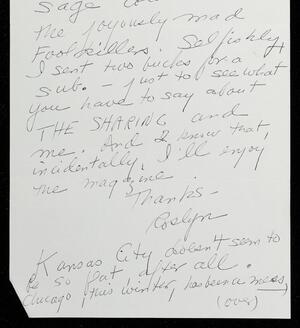 sage
the joyously mad
Foolkillers. Selfishly,
I sent two bucks for a
sub. – just to see what
you have to say about
THE SHARING and
me. And I know that,
incidentally, I'll enjoy
the magazine.
Thanks –
Roslyn
Kansas City doesn't seem to
be so flat after all.
Chicago, this winter, has been a mess,
(over)